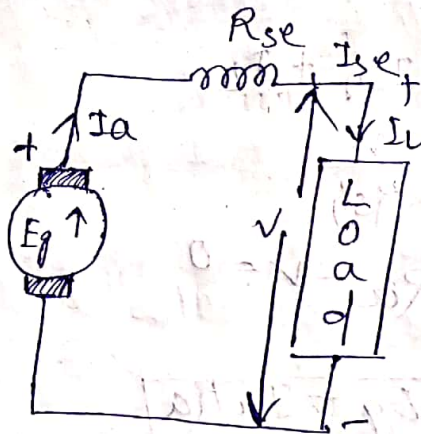 Rse
Ise +
+ Ia
IL
Eg ↑
V
L
o
a
d
-